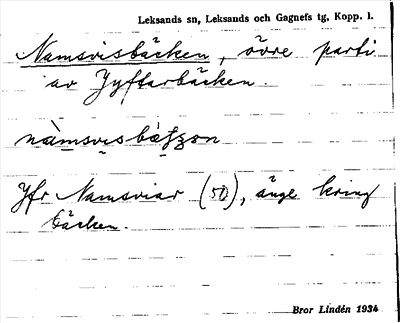 Leksands sn, Leksands och Gagnefs tg, Kopp. l.
Namsvisbäcken, övre parti
av Jyftarbäcken.
nàmsvisbät̮s̮on
Jfr Namsviar (50), änge kring
bäcken.
Bror Lindén 1934